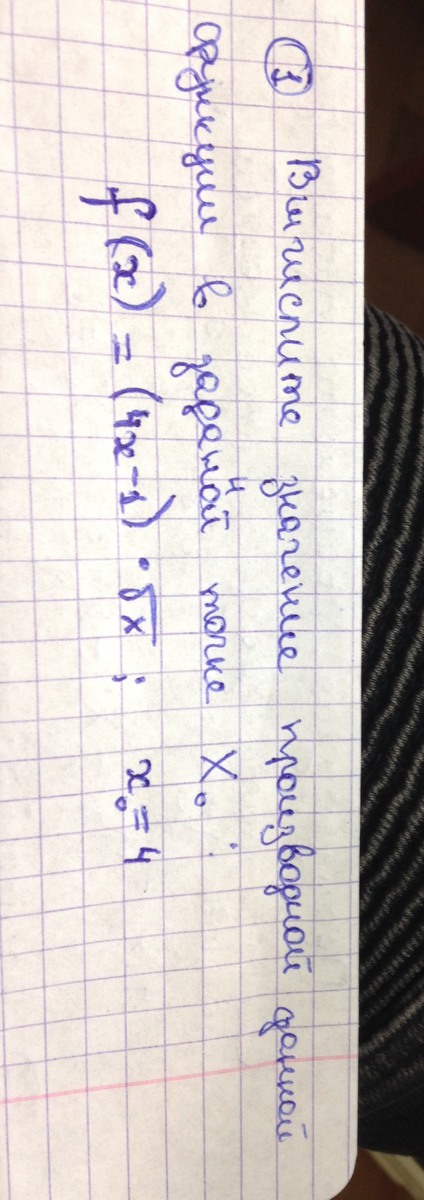 ① Вычислите значение производной данной
функции в заданной точке X₀ :
f(x) = (4x-1) · √x ; x₀ = 4